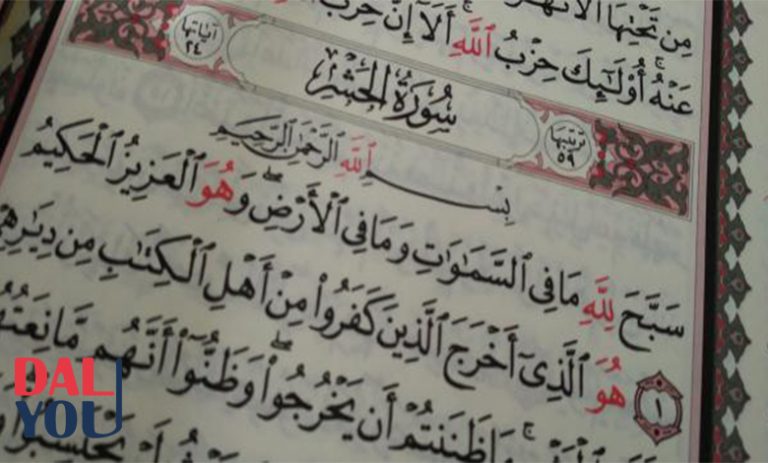 مِن تَحْتِهَا ٱلْأَنْهَٰرُ
عَنْهُ ۚ أُو۟لَٰٓئِكَ حِزْبُ ٱللَّهِ ۚ أَلَآ إِنَّ حِزْبَ
ترتيبها ٥٩ سُورَةُ الحَشْرِ آياتها ٢٤
بِسْمِ ٱللَّهِ ٱلرَّحْمَٰنِ ٱلرَّحِيمِ
سَبَّحَ لِلَّهِ مَا فِى ٱلسَّمَٰوَٰتِ وَمَا فِى ٱلْأَرْضِ ۖ وَهُوَ ٱلْعَزِيزُ ٱلْحَكِيمُ
١ هُوَ ٱلَّذِىٓ أَخْرَجَ ٱلَّذِينَ كَفَرُوا۟ مِنْ أَهْلِ ٱلْكِتَٰبِ مِن دِيَٰرِهِ
مَا ظَنَنتُمْ أَن يَخْرُجُوا۟ ۖ وَظَنُّوٓا۟ أَنَّهُم مَّانِعَتُهُ
DAL YOU